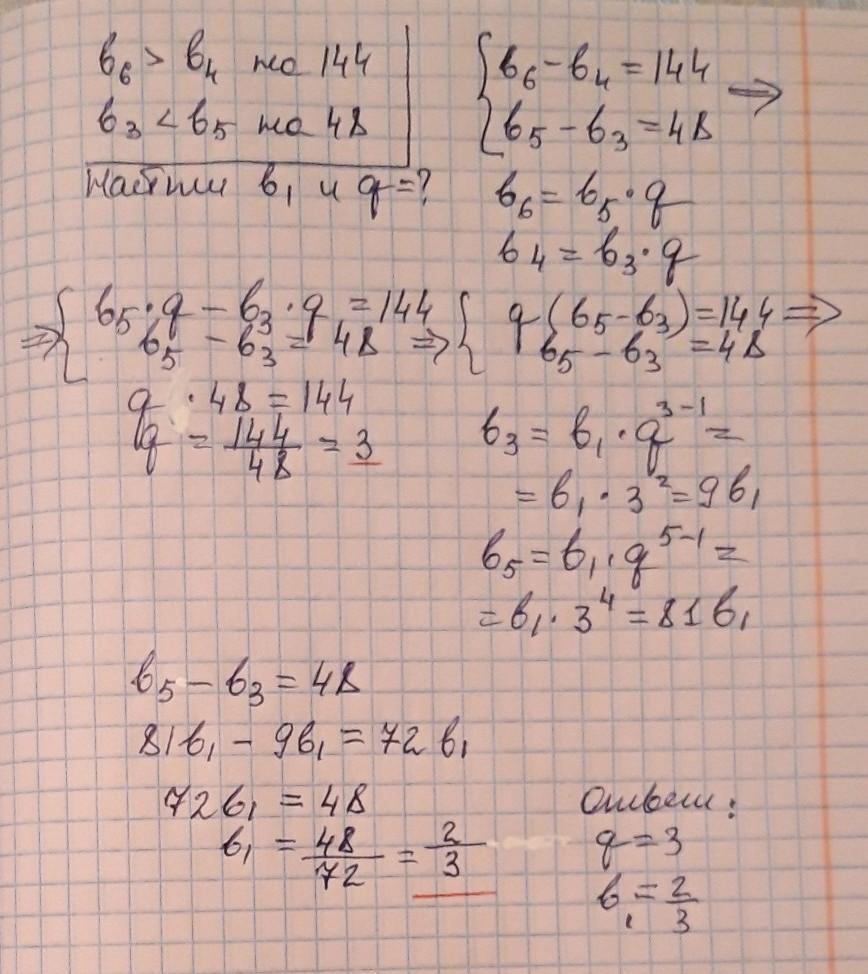 b₆ > b₄ на 144
b₃ < b₅ на 48
Найти b₁ и q=?
{b₆ - b₄ = 144
{b₅ - b₃ = 48 ⇒
b₆ = b₅ · q
b₄ = b₃ · q
⇒ {b₅ · q - b₃ · q = 144
b₅ - b₃ = 48 ⇒ {q (b₅ - b₃) = 144 ⇒
b₅ - b₃ = 48
q · 48 = 144
q = 144/48 = 3
b₃ = b₁ · q³⁻¹ =
= b₁ · 3² = 9b₁
b₅ = b₁ · q⁵⁻¹ =
= b₁ · 3⁴ = 81b₁
b₅ - b₃ = 48
81b₁ - 9b₁ = 72b₁
72b₁ = 48
b₁ = 48/72 = 2/3
Ответ:
q = 3
b₁ = 2/3